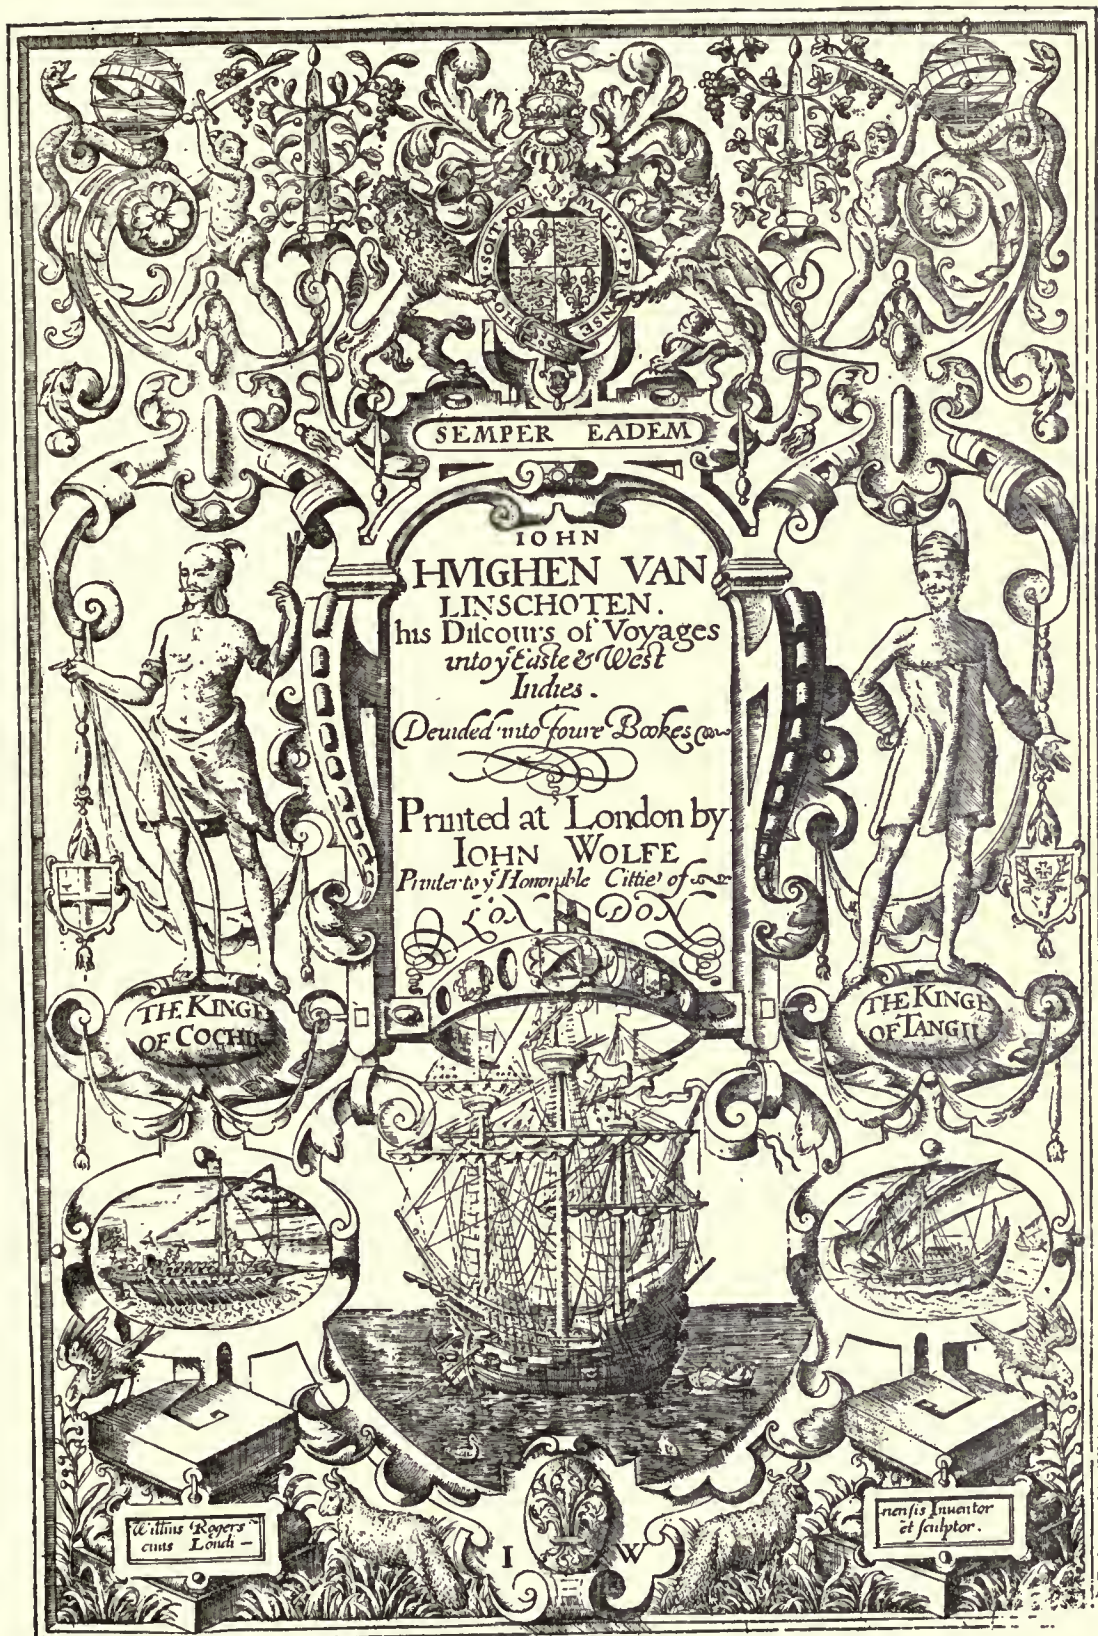 HONI · SOIT · QVI · MAL · Y · PENSE
SEMPER EADEM
IOHN
HVIGHEN VAN
LINSCHOTEN.
his Discours of Voyages
into yᵉ Easte & West
Indies.
Deuided into foure Bookes
Printed at London by
IOHN WOLFE
Printer to yᵉ Honorable Cittie of
LONDON
THE KINGE
OF COCHIN
THE KINGE
OF TANGIL
Willms Rogers
ciuis Londi-
nensis Inuentor
et sculptor.
I W